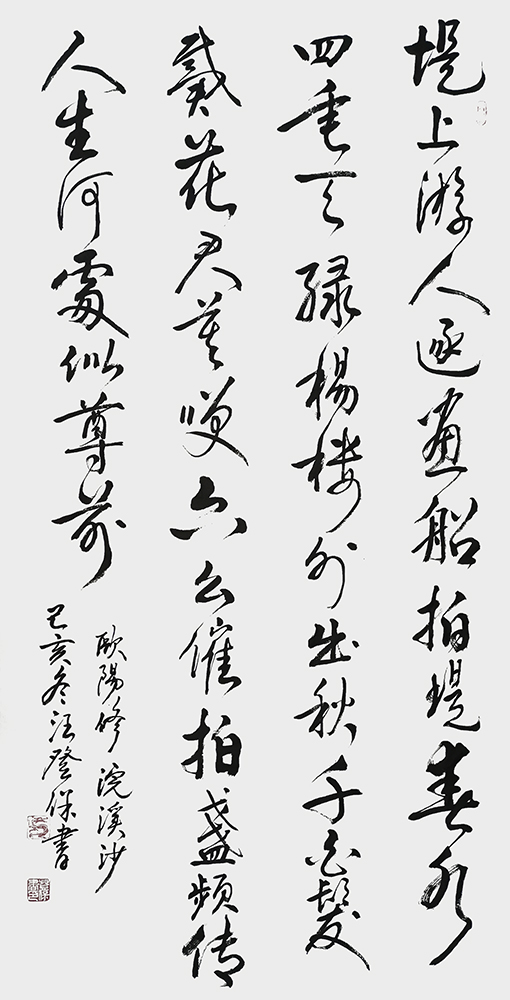 堤上游人逐畫船拍堤春水
四垂天绿楊楼外出秋千白髮
戴花君莫笑六幺催拍盏頻传
人生何處似尊前
歐陽修 浣溪沙
己亥冬汪登保書